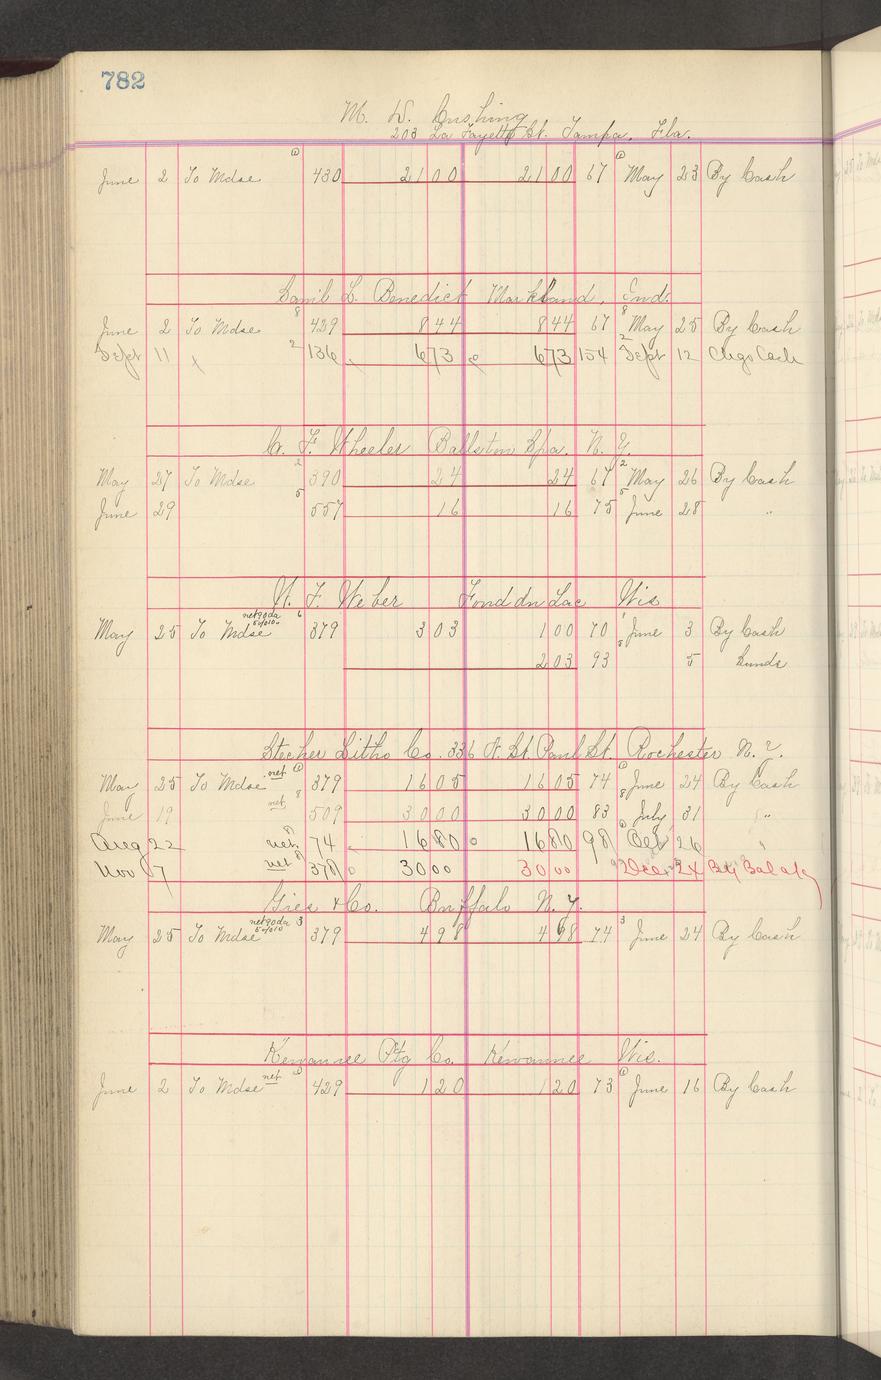 782
M. D. Cushing
203 La Fayette St. Tampa, Fla.
June 2 To Mdse 430 2100 2100 67 May 23 By Cash
L. Benedict Markland, Ind.
June 2 To Mdse 8 429 844 844 67 8 May 25 By Cash
Sept 11 " 2 136 673 673 154 2 Sept 12 Chgo Cash
F. Wheeler Ballston Spa. N. Y.
May 27 To Mdse 2 390 24 24 67 2 May 26 By Cash
June 29 5 557 16 16 75 5 June 28 "
F. Weber Fond du Lac Wis
May 25 To Mdse net 90 da 6 379 303 100 70 June 3 By Cash
203 93 5 Sunds
Stecher Litho Co. 336 N. St. Paul St. Rochester N. Y.
May 25 To Mdse net 379 1605 1605 74 June 24 By Cash
June 19 net 8 509 3000 3000 83 8 July 31 "
Aug 22 net 74 1680 1680 98 Oct 26 "
Nov 7 net 378 3000 3000 Dec 24 By Bal
Gies & Co. Buffalo N. Y.
May 25 To Mdse net 90 da 3 379 498 498 74 3 June 24 By Cash
Kewaunee Ptg Co. Kewaunee Wis.
June 2 To Mdse net 429 120 120 73 June 16 By Cash